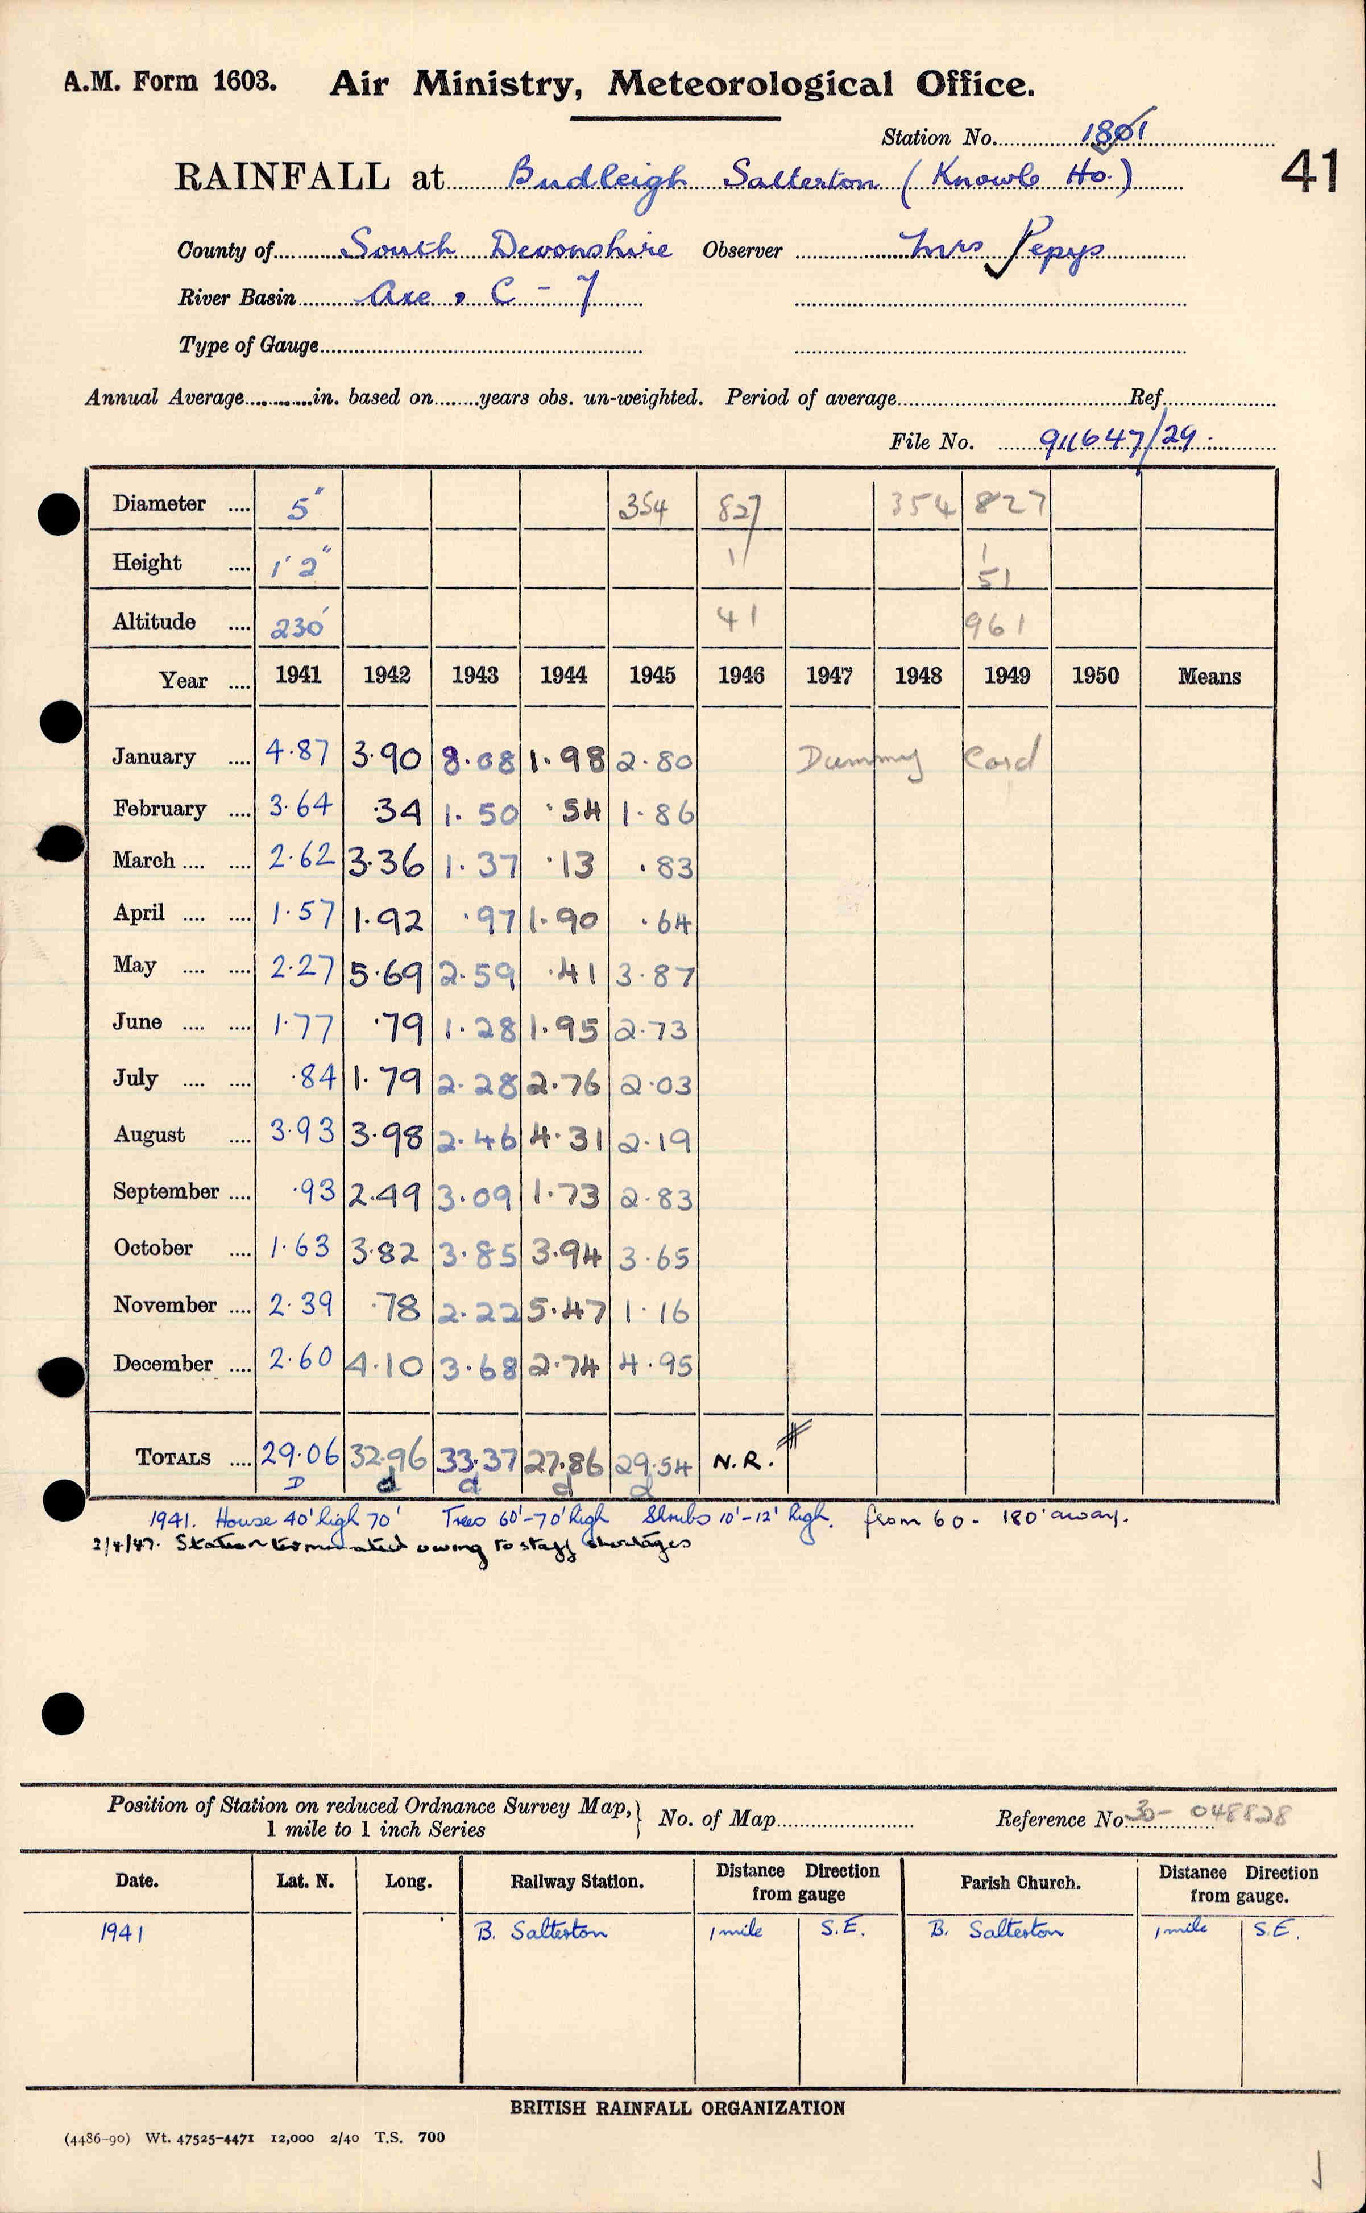 A.M. Form 1603. Air Ministry, Meteorological Office.
Station No. 1801
41
RAINFALL at Budleigh Salterton (Knowle Ho.)
County of South Devonshire Observer Mrs Pepys
River Basin Axe. C - 7
Type of Gauge
Annual Average in. based on years obs. un-weighted. Period of average Ref.
File No. 911647/29.
Diameter .... 5" 354 827 354 827
Height .... 1'2" 1 1 51
Altitude .... 230' 41 961
Year .... 1941 1942 1943 1944 1945 1946 1947 1948 1949 1950 Means
January .... 4.87 3.90 8.08 1.98 2.80 Dummy Card
February .... 3.64 .34 1.50 .54 1.86
March .... .... 2.62 3.36 1.37 .13 .83
April .... .... 1.57 1.92 .97 1.90 .64
May .... .... 2.27 5.69 2.59 .41 3.87
June .... .... 1.77 .79 1.28 1.95 2.73
July .... .... .84 1.79 2.28 2.76 2.03
August .... 3.93 3.98 2.46 4.31 2.19
September .... .93 2.49 3.09 1.73 2.83
October .... 1.63 3.82 3.85 3.94 3.65
November .... 2.39 .78 2.22 5.47 1.16
December .... 2.60 4.10 3.68 2.74 4.95
TOTALS .... 29.06 32.96 33.37 27.86 29.54 N.R.
D d d d d
1941. House 40' high 70' Trees 60'-70' high Shrubs 10'-12' high. from 60 - 180' away.
2/4/47. Station terminated owing to staff shortages
Position of Station on reduced Ordnance Survey Map, } No. of Map Reference No. 30- 048828
1 mile to 1 inch Series
Date. Lat. N. Long. Railway Station. Distance Direction from gauge Parish Church. Distance Direction from gauge.
1941 B. Salterton 1 mile S.E. B. Salterton 1 mile S.E.
BRITISH RAINFALL ORGANIZATION
(4486-90) Wt. 47525-4471 12,000 2/40 T.S. 700